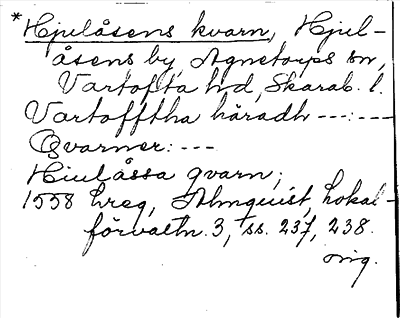 *Hjulåsens kvarn, Hjul-
åsens by, Agnetorps sn,
Vartofta hd, Skarab. l.
Vartofftha häradh ---: ---
Qvarner: ---
Hiulåssa qvarn;
1558 hreg, Almquist, Lokal-
förvaltn. 3, ss. 237, 238.
orig.